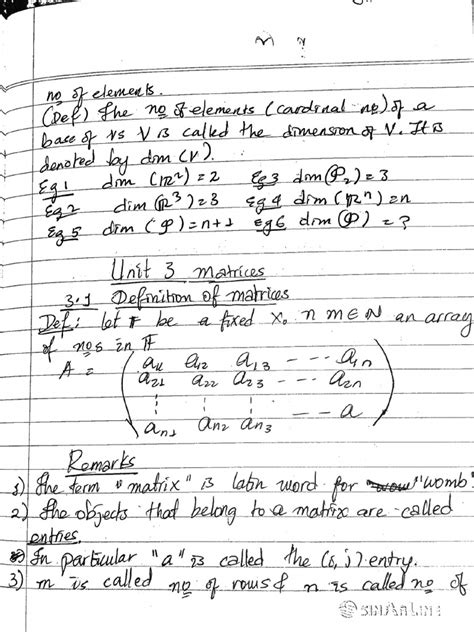 no of elements.
(Def) The no of elements (cardinal no) of a
base of vs V is called the dimension of V. It is
denoted by dim (V).
Eg 1 dim (R²) = 2 Eg 3 dim (P₂) = 3
Eg 2 dim (R³) = 3 Eg 4 dim (Rⁿ) = n
Eg 5 dim (P) = n+1 Eg 6 dim (P) = ?
Unit 3 matrices
3.1 Definition of matrices
Def: let F be a fixed n m ∈ N an array
of nos in F
A = ( a11 a12 a13 --- a1n
a21 a22 a23 --- a2n
⋮ ⋮ ⋮
an1 an2 an3 --- a )
Remarks
1) The term "matrix" is latin word for "womb".
2) The objects that belong to a matrix are called
entries.
In particular "a" is called the (i, j) entry.
3) m is called no of rows & n is called no of